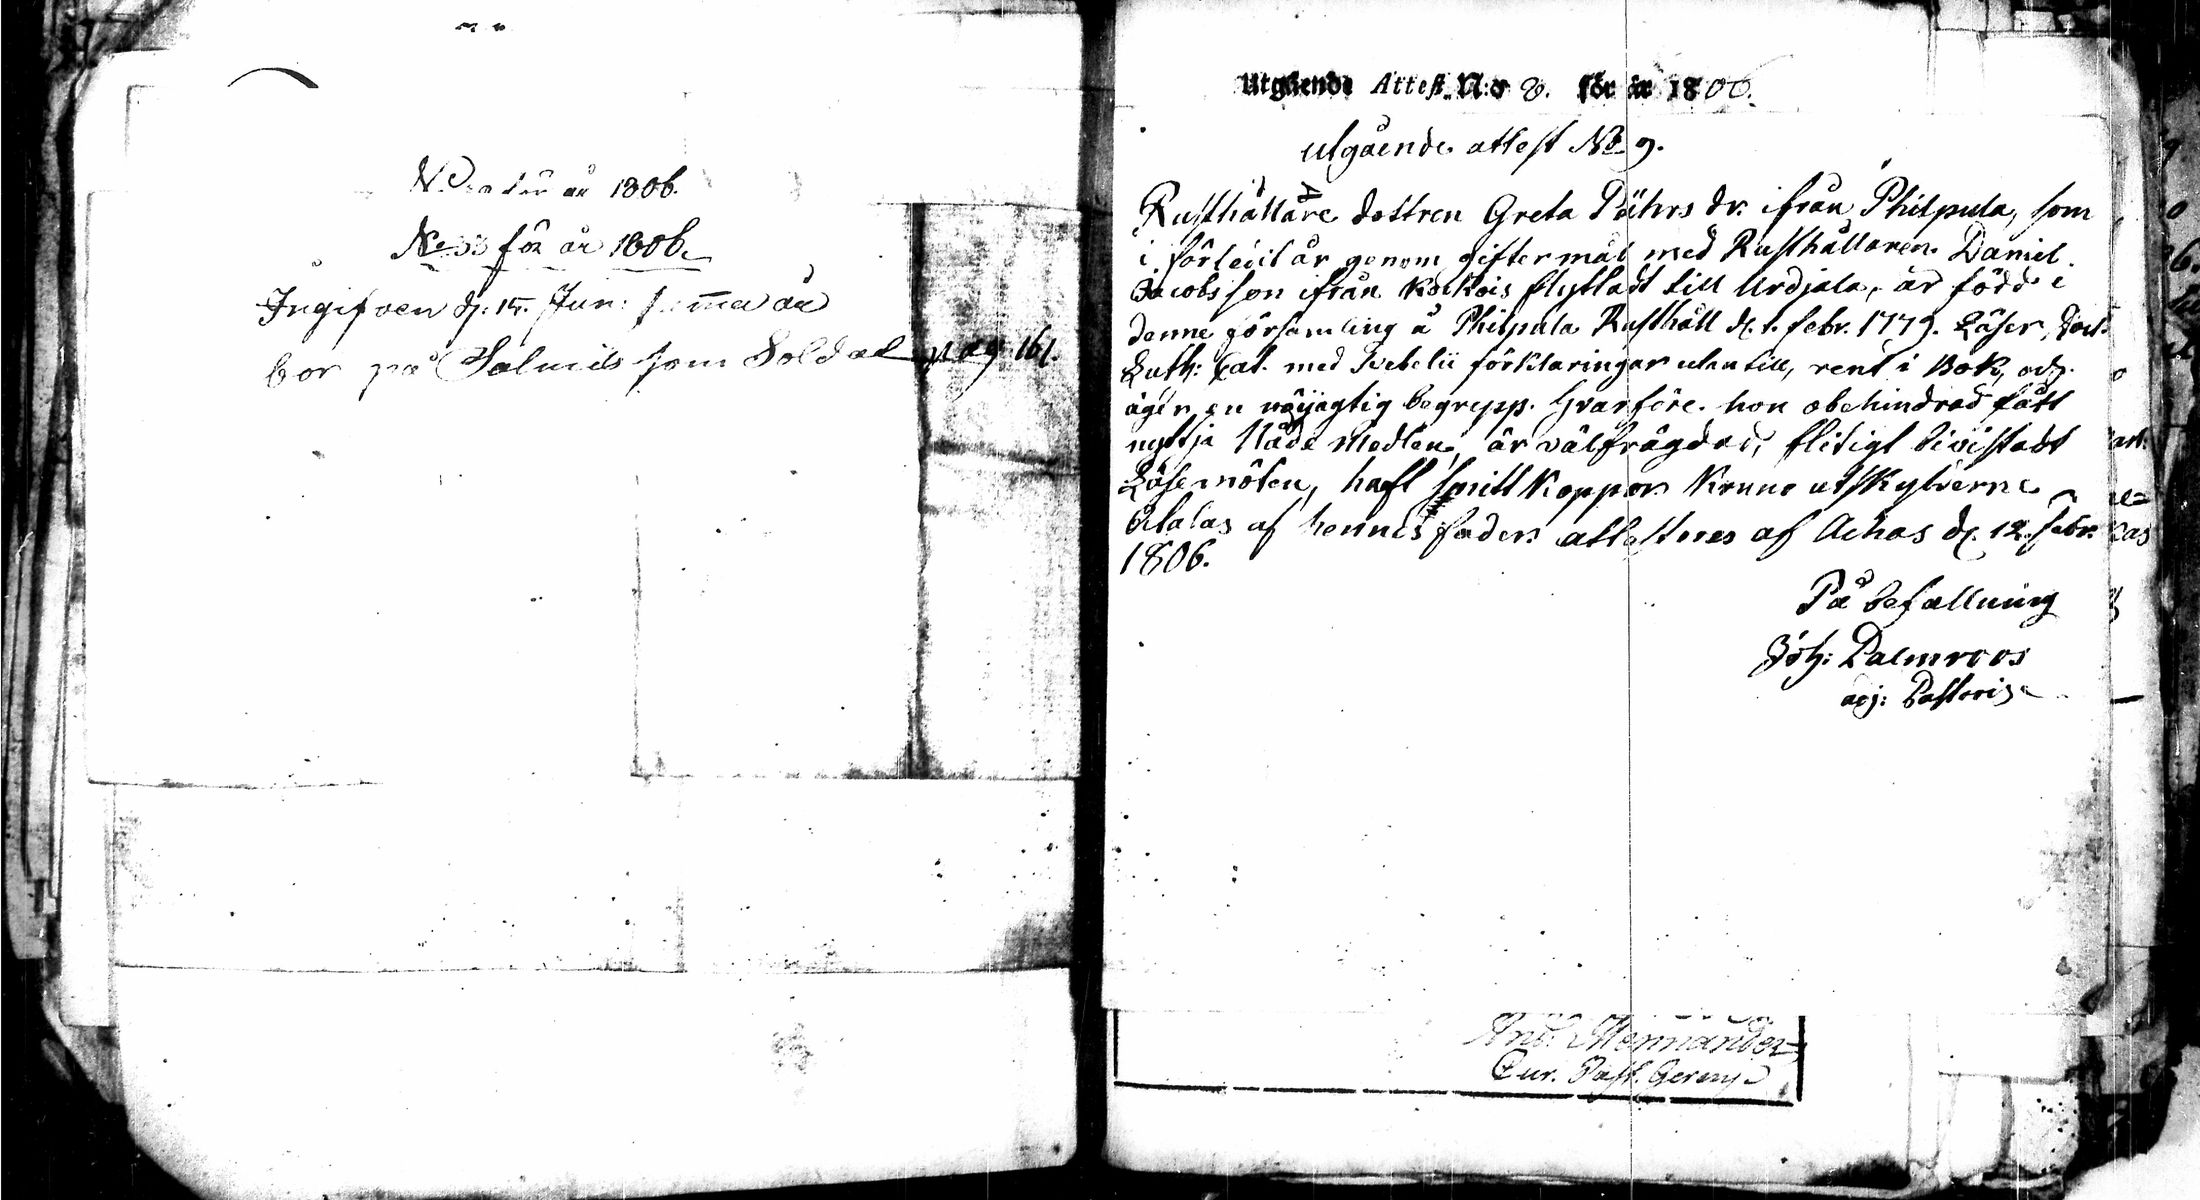 för år 1806.
No 33 för år 1806.
Ingifven d. 15. Jun: samma år
bor på Salmis som Soldat pag. 161.
Utgående Attest N:o 8. för år 1806.
Utgående attest No 9.
Rusthållare dottren Greta Pährs dr. ifrån Philpula, som
i förledit år genom giftermål med Rusthållaren Daniel
Jacobsson ifrån Kockois flyttadt till Urdjala, är född i
denne församling å Philpula Rusthåll d. 1. febr. 1779. Läser, Doct.
Luth: Cat. med Svebelii förklaringar utan till, rent i Bok, och
äger en nöyagtig begrepp. Hvarföre hon obehindrad fått
nyttja Nåde Medlen, är välfrägdad, flitigt bivistadt
Läsemöten, haft smitt Koppor. Kruno utskylderne
betalas af hennes fader. attesteres af Achas d. 12. febr.
1806.
På befallning
Joh: Palmroos
adj: Pastoris
And: Mennander
Cur. Past. Gerens